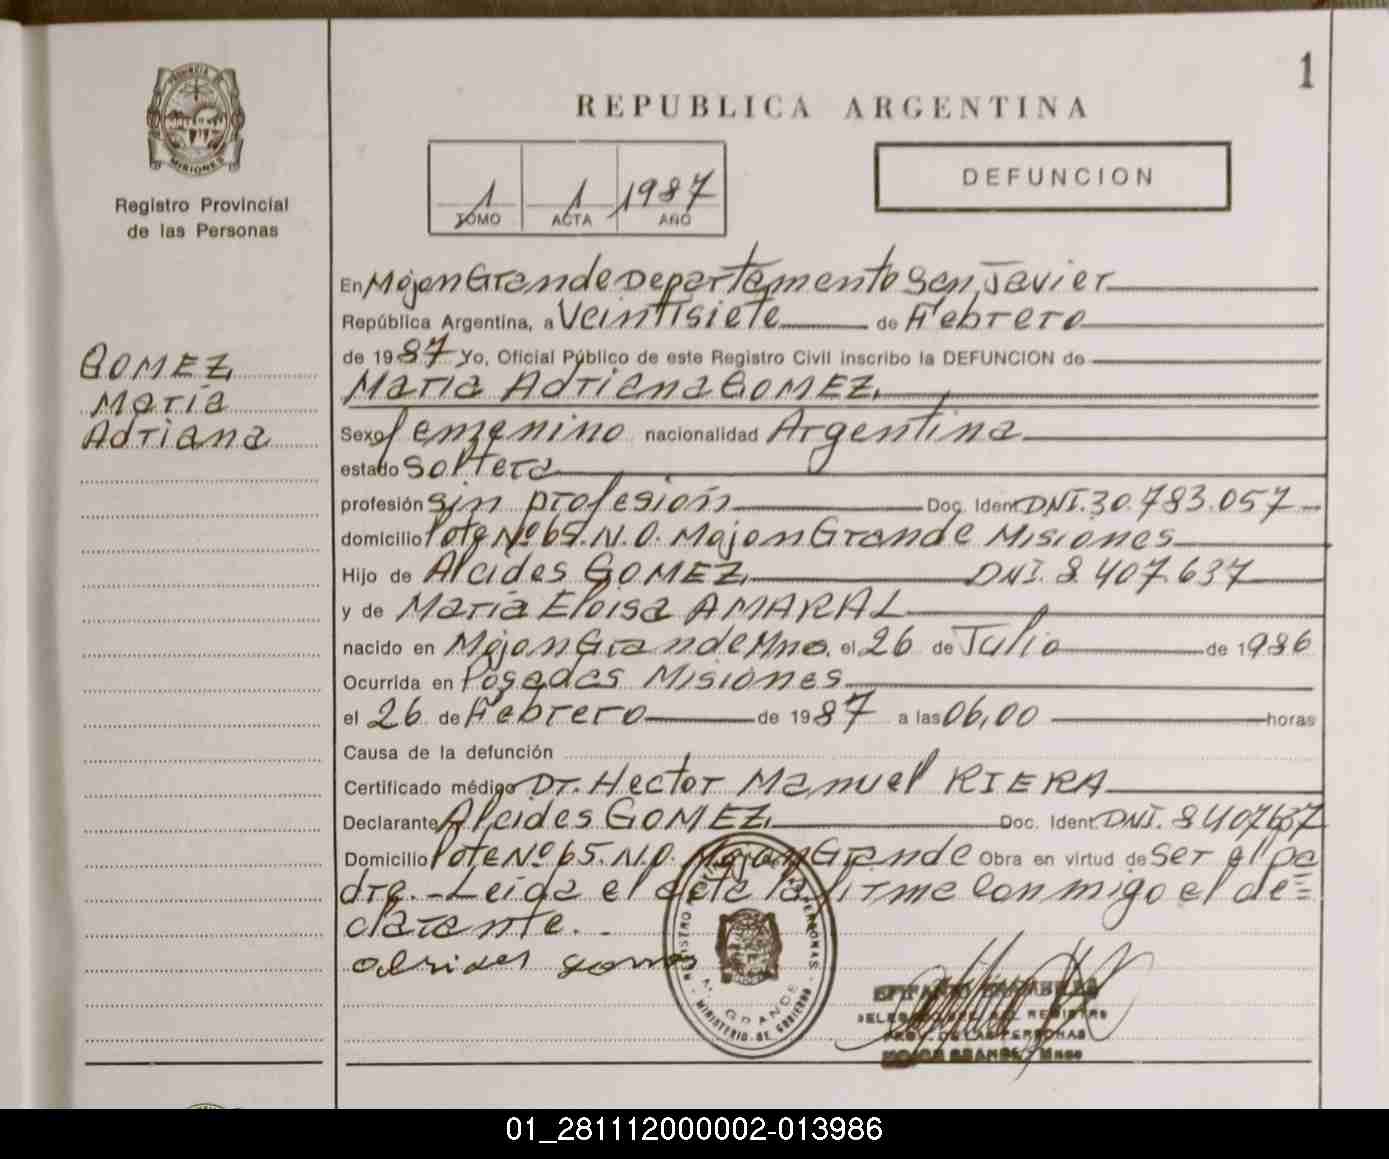 1
REPUBLICA ARGENTINA
PROVINCIA DE
MISIONES
Registro Provincial
de las Personas
1 1 1987
TOMO ACTA AÑO
DEFUNCION
GOMEZ
María
Adriana
En Mojon Grande Departamento San Javier
República Argentina, a Veintisiete de Febrero
de 1987 Yo, Oficial Público de este Registro Civil inscribo la DEFUNCION de
María Adriana GOMEZ
Sexo femenino nacionalidad Argentina
estado Soltera
profesión sin profesión Doc. Ident DNI. 30.783.057
domicilio Lote Nº 65. N.O. Mojon Grande Misiones
Hijo de Alcides GOMEZ DNI. 8.407.637
y de María Eloisa AMARAL
nacido en Mojon Grande Mnes. el 26 de Julio de 1986
Ocurrida en Posadas Misiones
el 26 de Febrero de 1987 a las 06,00 horas
Causa de la defunción
Certificado médico Dr. Hector Manuel RIERA
Declarante Alcides GOMEZ Doc. Ident. DNI. 8407637
Domicilio Lote Nº 65. N.O. Mojon Grande Obra en virtud de ser el pa
dre. - Leida el acta la firma conmigo el de=
clarante. -
REGISTRO PERSONAS
M. GRANDE
MINISTERIO DE GOBIERNO
DEL REGISTRO
PROV. DE LAS PERSONAS
MOJON GRANDE
01_281112000002-013986